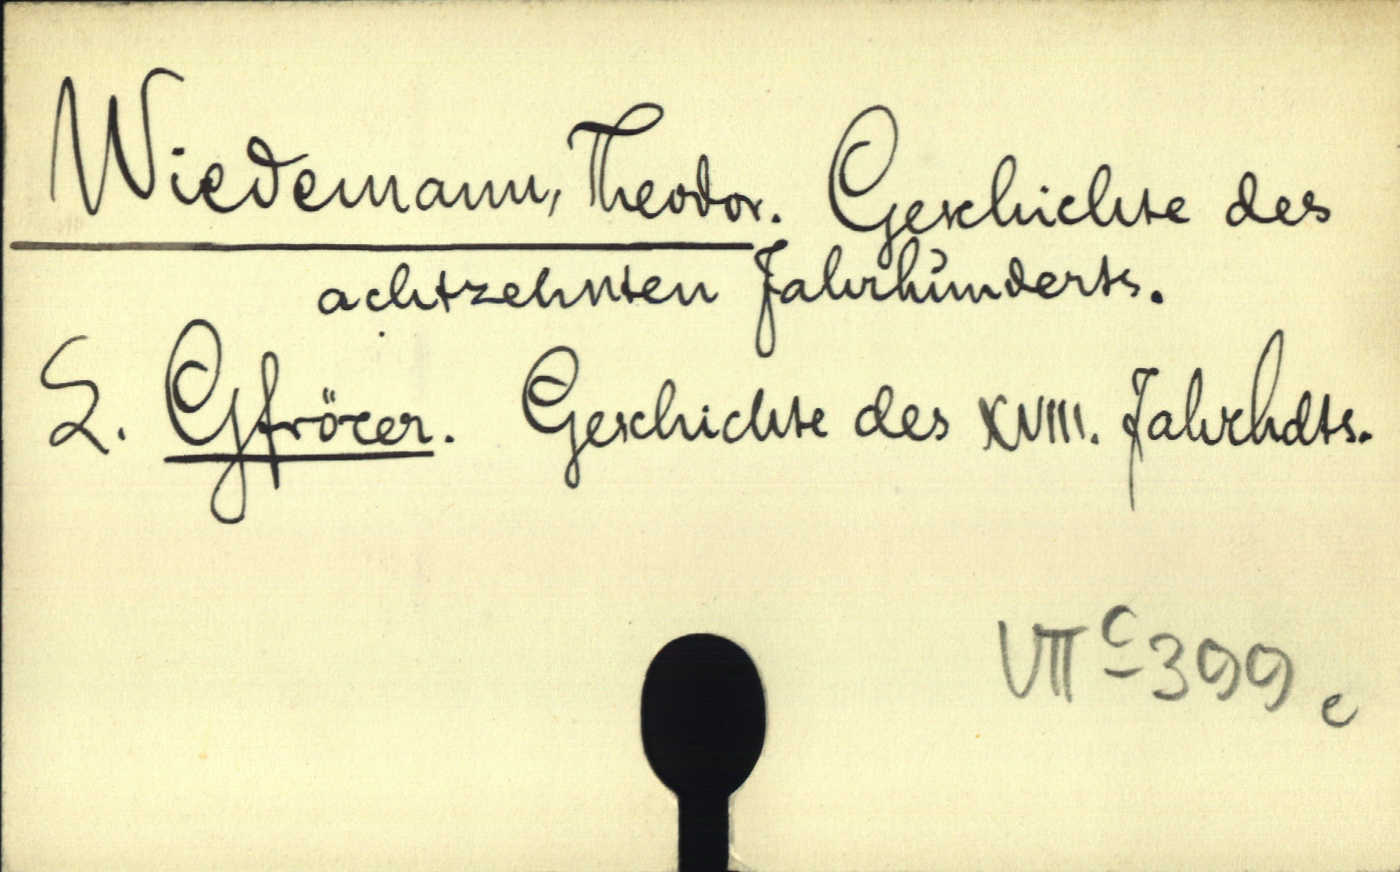 Wiedemann, Theodor. Geschichte des
achtzehnten Jahrhunderts.
S. Gfrörer. Geschichte des XVIII. Jahrhdts.
VII c 399 e